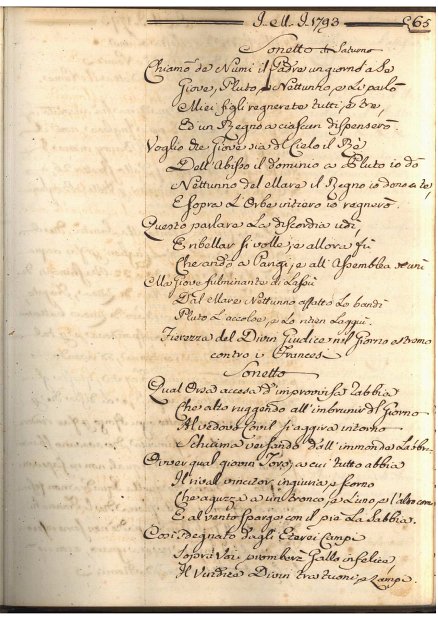 I. M. I. 1793 65
Sonetto di Saturno
Chiamò de Numi il Padre un giorno a Se
Giove, Pluto, e Nettunno, e Li parlò
Miei figli regnerete tutti, e tre,
Ed un Regno a ciascun dispenserò.
Voglio che Giove sia del Cielo il Rè
Dell'Abisso il dominio a Pluto io dò
Nettunno del Mare il Regno io dono a te,
E sopra L'Orbe intiero io regnerò.
Questo parlare La discordia udì,
E ribellar si volle, e allora fù
Che andò a Parigi, e all'Assemblea s'unì
Ma Giove fulminante di Lassù
Dal Mare Nettunno affatto Lo bandì
Pluto L'accolse, e Lo ritien Laggiù.
Fierezza del Divin Giudice nel Giorno estremo
contro i Francesi
Sonetto
Qual Orsa accesa d'improvvisa rabbia
Che alto ruggendo all'imbrunir del Giorno
Al vedovo Covil si aggira intorno
Schiuma versando dall'immonde Labbra
Ovver qual giovin Toro, a cui tutto abbia
Il rival vincitor, ingiuria, e scorno
Che aguzza a un tronco, e l'uno, e l'altro corno
E al vento sparge con il piè La sabbia.
Così sdegnato dagli Eterei Campi
Sopra Voi piomberà Gallo infelice
Il Vindice Divin tra tuoni, e Lampi.